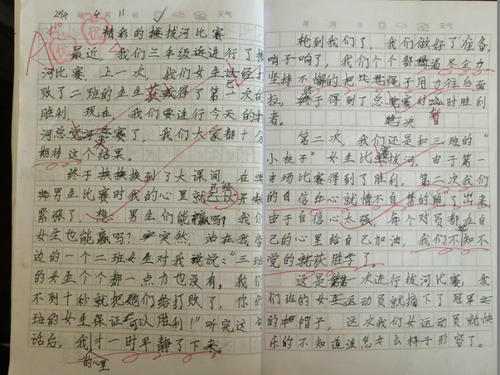 精彩的拔河比赛
最近,我们三年级近进行了拔
河比赛,上一次,我们女生已经打
败了二班的女生获得了第一次的
胜利,现在,我们要进行今天的拔
河总决赛了,我们大家都十分
期待这个结果。
终于挨到了大课间,在
男生比赛时我的心里就已经开始
紧张了,想,男生们能赢吗?我们
女生也能赢吗?突然,站在我旁
边的一个二班女生对我说:“三班
的女生个个都一点力也没有,我们
不到十秒就把她们给打败了,你们
班的女生保证可以胜利!”听完这句
话后,我的心里才一时平静了下来。
轮到我们了,我们做好了准备,
哨子响了,我们个个都尽全力
坚持不懈的把绳子用力往后面
拉,终于得到了总决赛的临时胜利
者。
第二次,我们还是和三班的“
小柱子”女生比拔河,由于第一
场比赛得到了胜利,第二次我们
的自信心就情不自禁的跑了出来
由于自信心太强,每个对员都在自
己的心里给自己加油,我们不知不
觉的就获胜了。
这是第一次进行拔河比赛,我
们班的女生运动员就摘下了冠军
的帽子,这次我们女运动员就快
乐的不知道该怎么样子形容了。